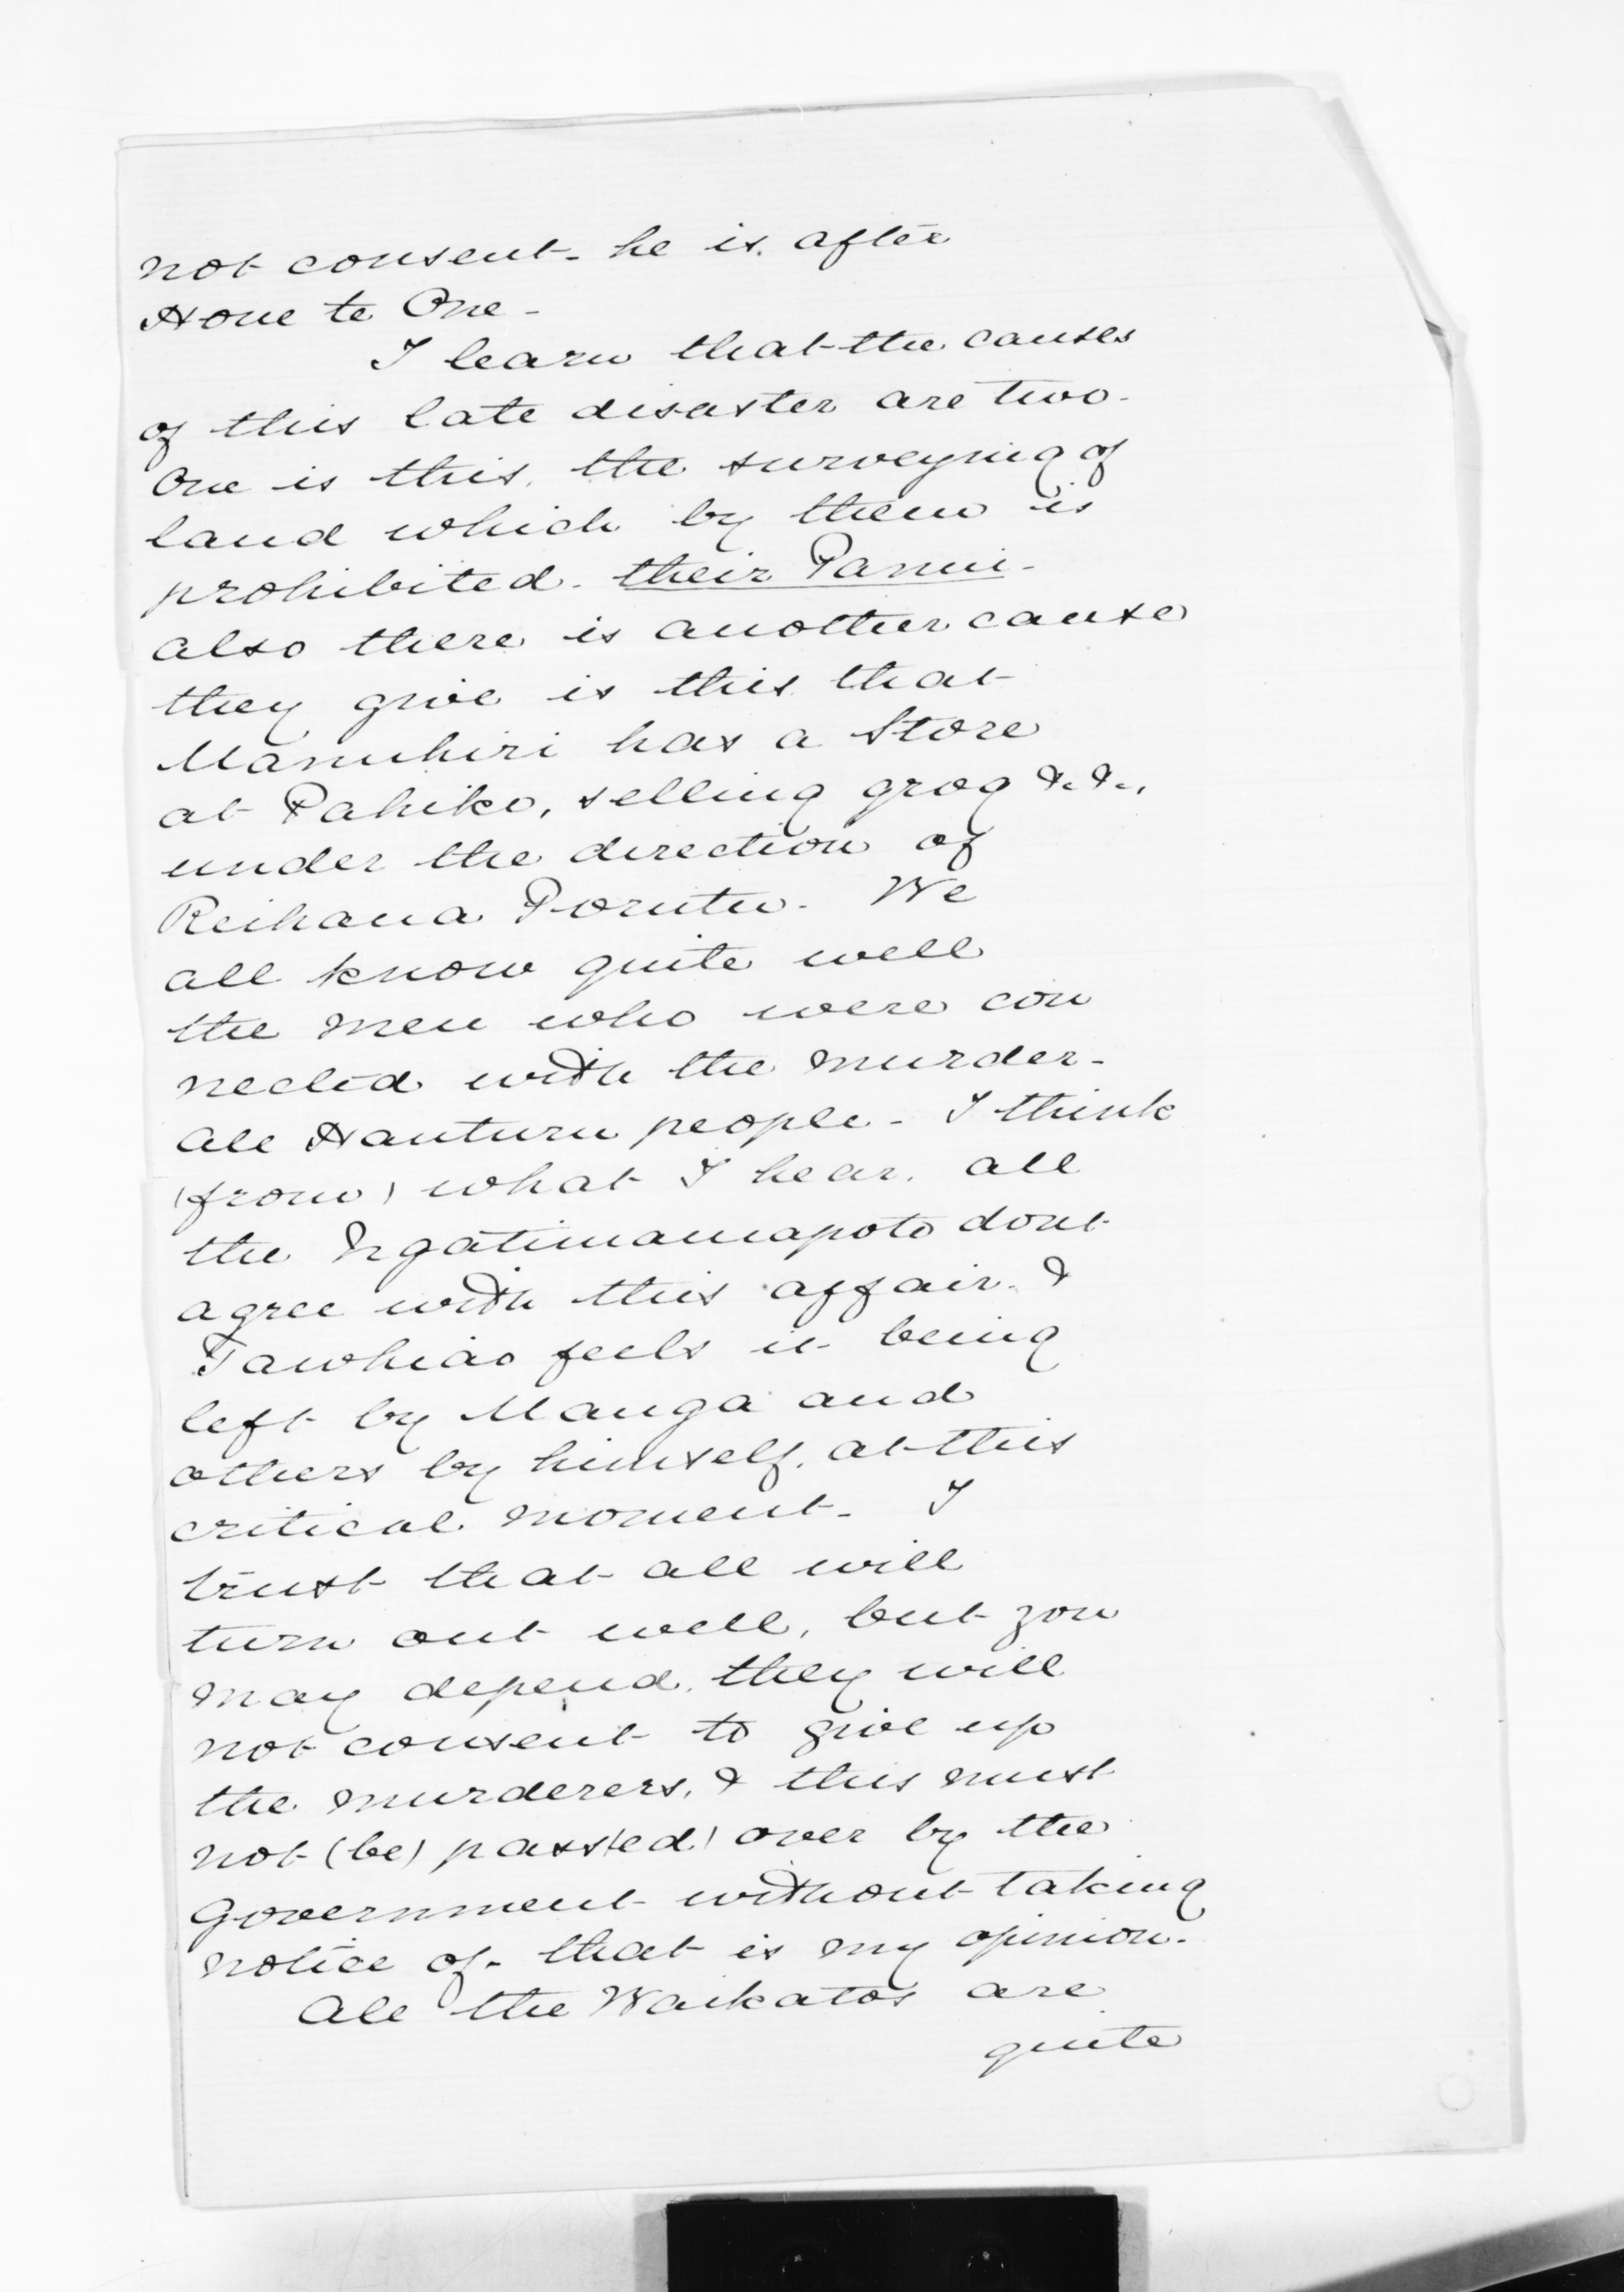 not consent - he is after
Hone te One -
I learn that the causes
of this late disaster are two -
One is this, the surveying of
land which by them is
prohibited - their Panui -
also there is another cause
they give is this that
Manuhiri has a Store
at Pahiko, selling grog &c &c,
under the direction of
Reihana Porutu - We
all know quite well
the men who were con
nected with the murder -
All Hauturu people - I think
(from) what I hear, all
the Ngatimaniapoto dont
agree with this affair &
Tawhiao feels it being
left by Manga and
others by himself, at this
critical moment - I
trust that all will
turn out well, but you
may depend, they will
not consent to give up
the murderers, & this must
not (be) pass(ed) over by the
Government without taking
notice of - that is my opinion -
All the Waikatos are
quite